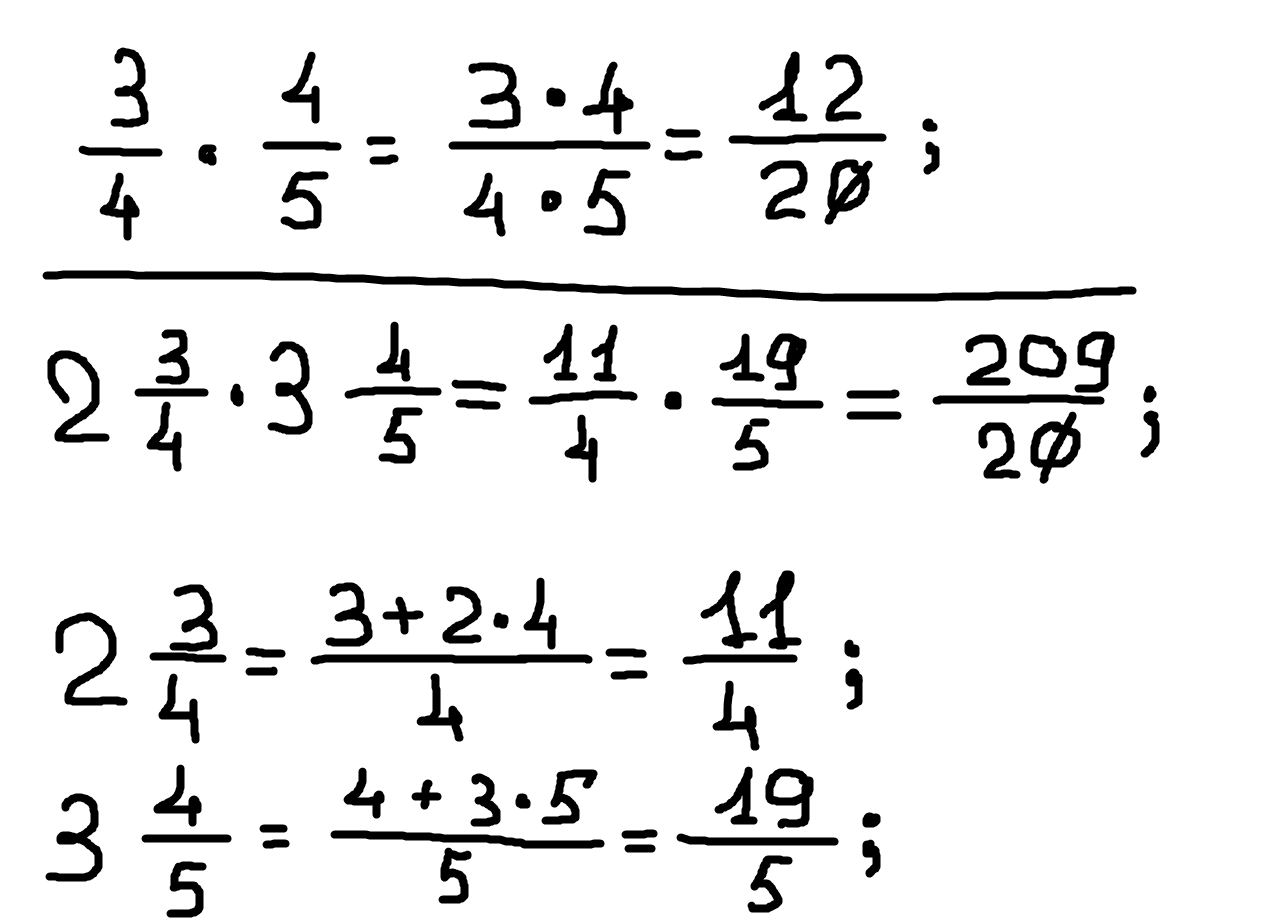 3/4 · 4/5 = (3 · 4)/(4 · 5) = 12/20 ;
2 3/4 · 3 4/5 = 11/4 · 19/5 = 209/20 ;
2 3/4 = (3 + 2 · 4)/4 = 11/4 ;
3 4/5 = (4 + 3 · 5)/5 = 19/5 ;